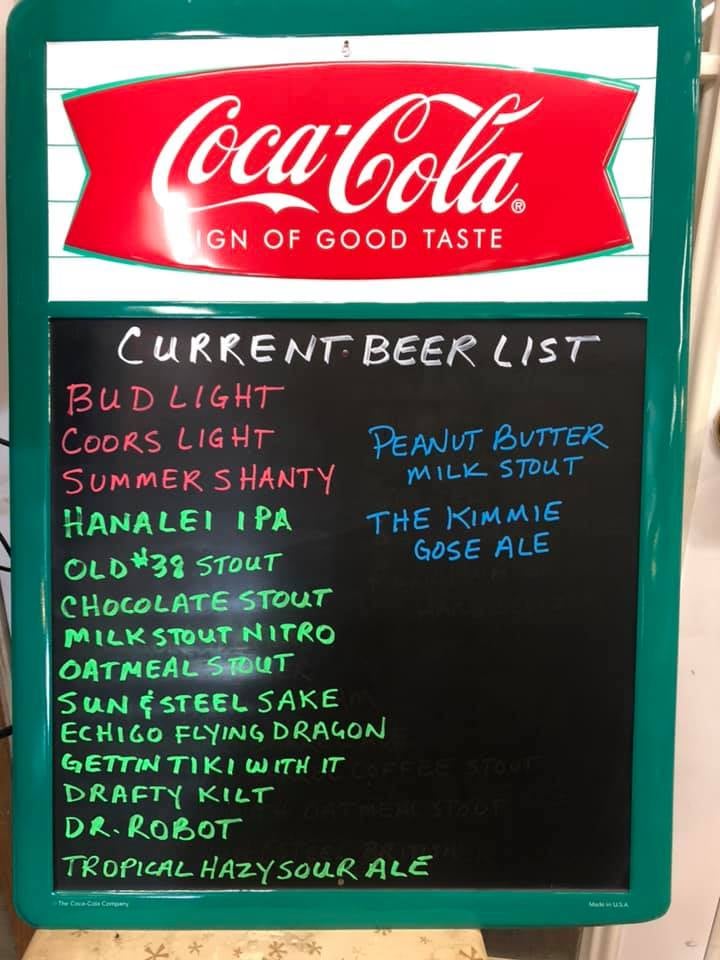 Coca-Cola®
IGN OF GOOD TASTE
CURRENT BEER LIST
BUD LIGHT
COORS LIGHT
SUMMER SHANTY
HANALEI IPA
OLD #38 STOUT
CHOCOLATE STOUT
MILK STOUT NITRO
OATMEAL STOUT
SUN & STEEL SAKE
ECHIGO FLYING DRAGON
GETTIN TIKI WITH IT
DRAFTY KILT
DR. ROBOT
TROPICAL HAZY SOUR ALE
PEANUT BUTTER
MILK STOUT
THE KIMMIE
GOSE ALE
COFFEE STOUT
OATMEAL STOUT
The Coca-Cola Company
Made in U.S.A.